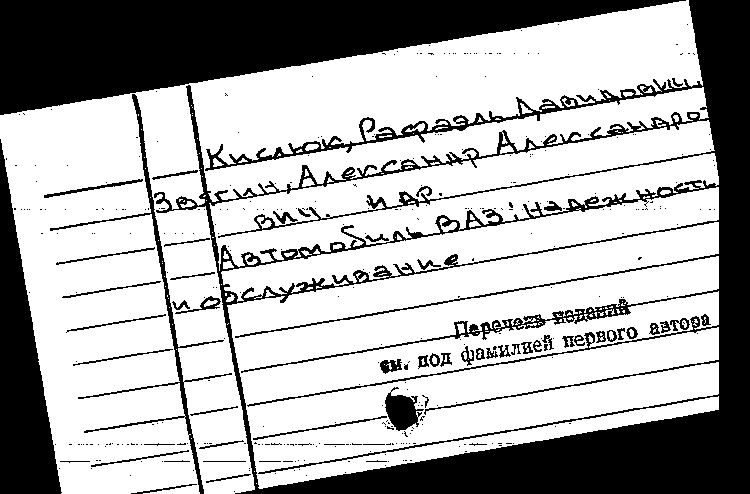 Кислюк, Рафаэль Давидович.
Звягин, Александр Александро-
вич. и др.
Автомобиль ВАЗ: надежность
и обслуживание.
Перечень изданий
см. под фамилией первого автора